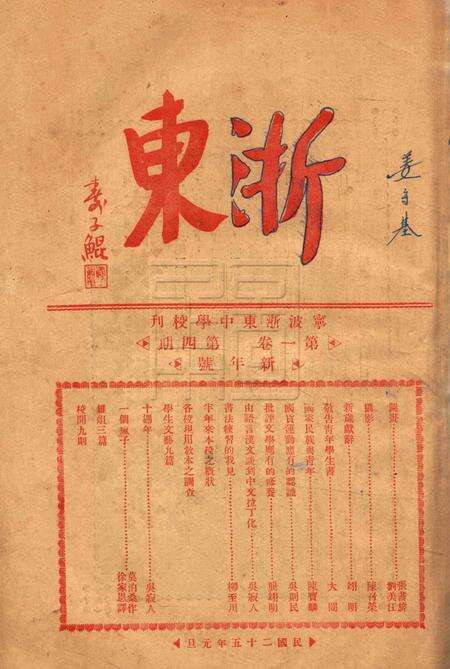 浙東
壽子鯤
姜子基
寧波浙東中學校刊
第一卷 第四期
新年號
圖畫 張書旂 劉美汪
攝影 陳喬榮
新歲獻辭 翊明
敬告青年學生書 大闓
國家民族與青年 陳寶麟
國貨運動應有的認識 吳則民
批評文學應有的修養 吳翊明
由諧音漢文談到中文拉丁化 吳寂人
書法練習的我見 柳亞川
半年來本校之概狀
各校現用教本之調查
學生文藝九篇
十週年 吳寂人
一個瘋子 莫泊桑作 徐家恩譯
雜俎三篇
校聞九則
民國二十五年元旦